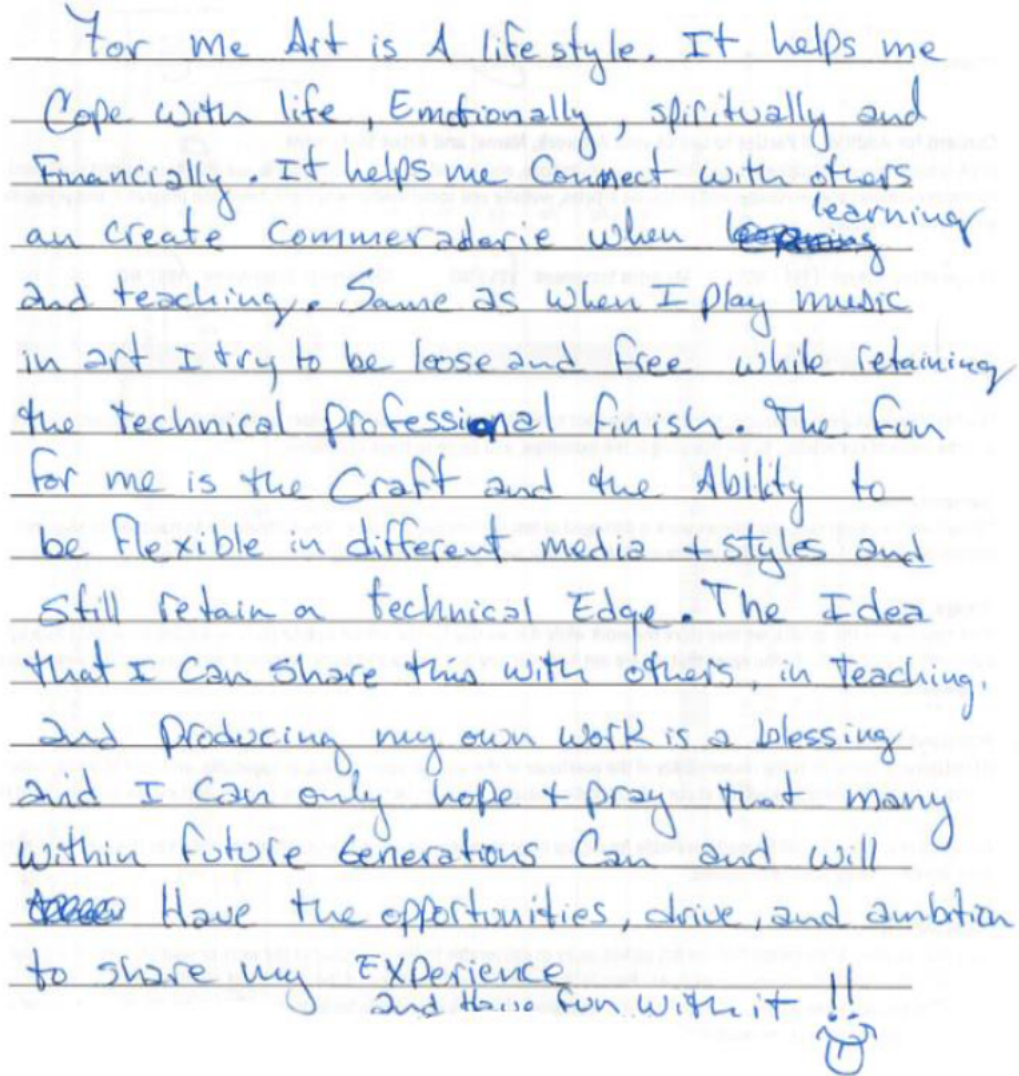 For me Art is A lifestyle. It helps me
Cope with life, Emotionally, spiritually and
Financially It helps me Connect with others
learning
an create Commeraderie when
and teaching. Same as when I play music
in art I try to be loose and free while retaining
the technical professional finish. The fun
for me is the Craft and the Ability to
be flexible in different media + styles and
still retain a technical Edge. The Idea
that I Can share this with others, in teaching,
and producing my own work is a blessing
and I Can only hope + pray that many
within future Generations Can and will
Have the opportunities, drive, and ambition
to share my Experience
and have fun with it !!